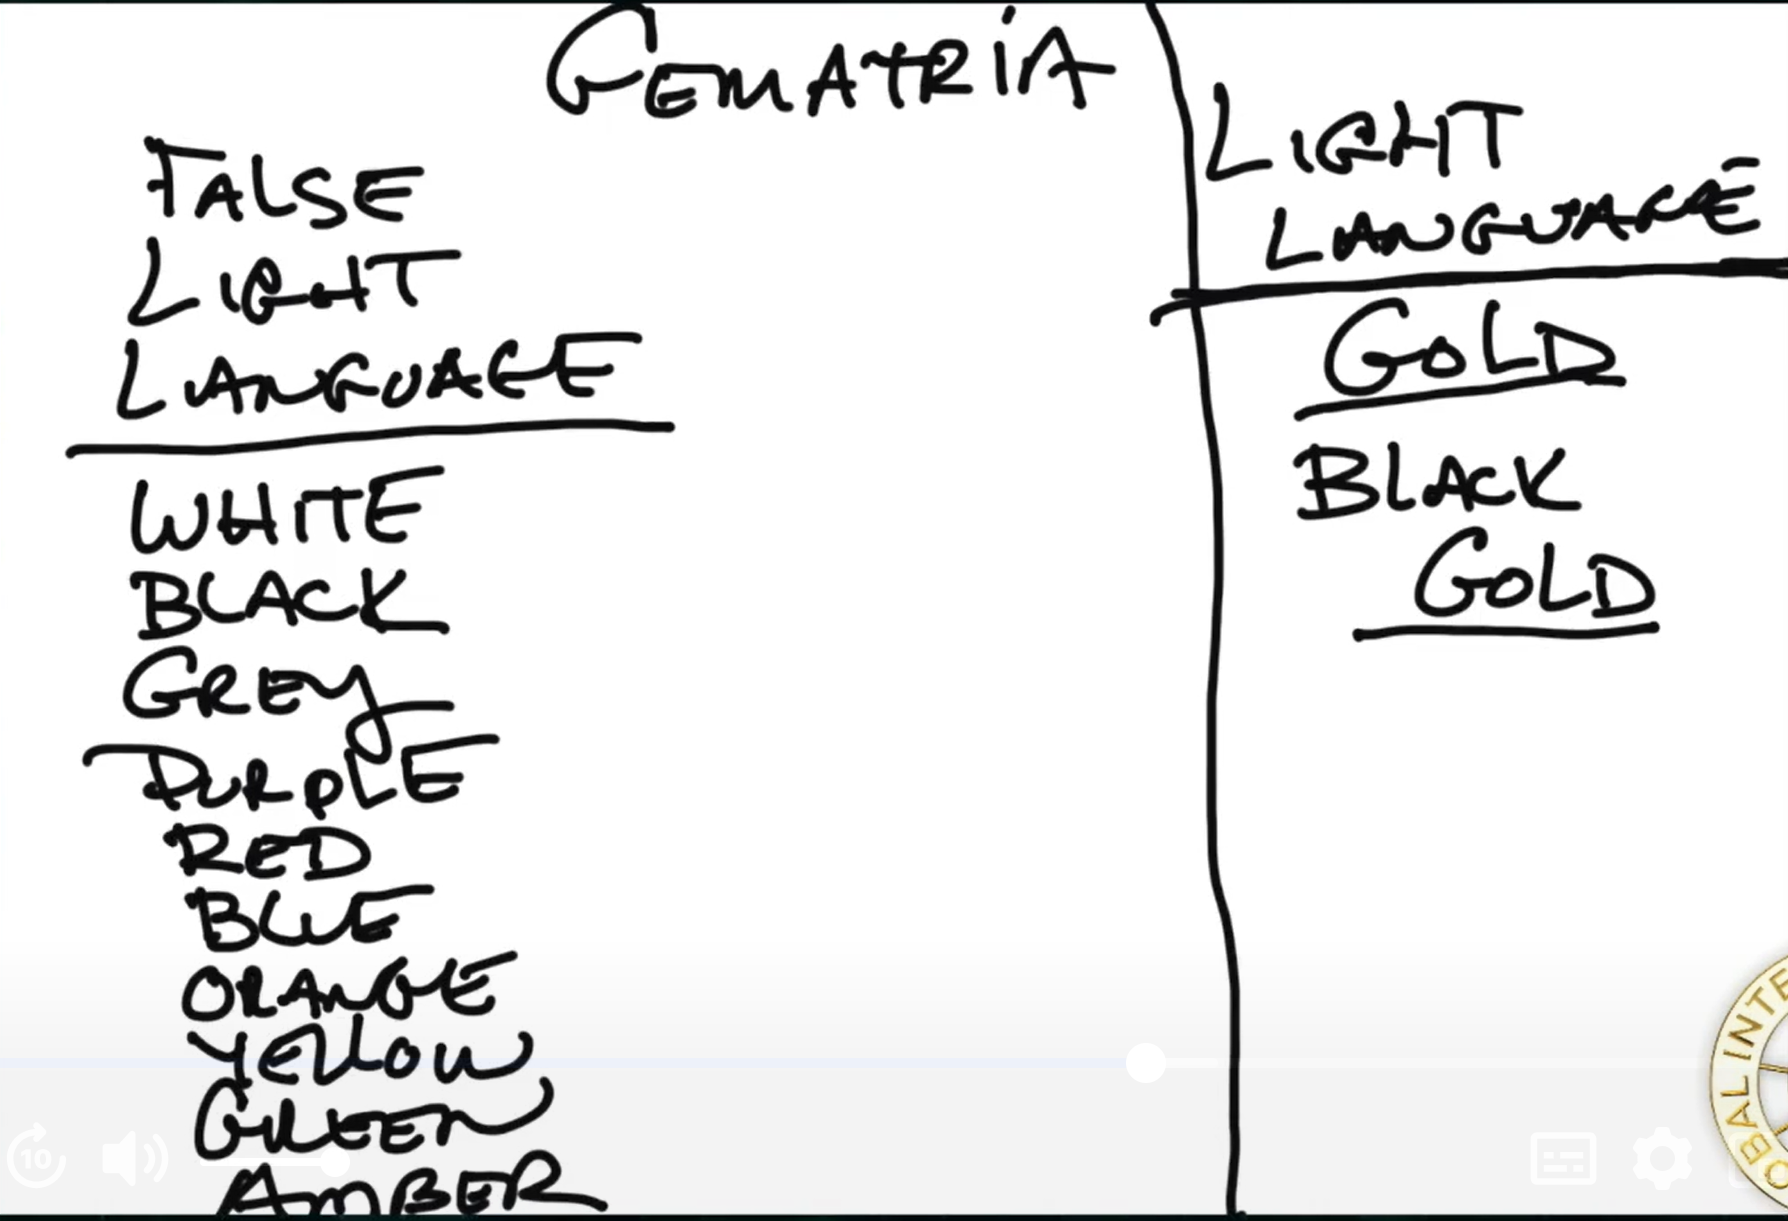 GEMATRIA
FALSE
LIGHT
LANGUAGE
WHITE
BLACK
GREY
PURPLE
RED
BLUE
ORANGE
YELLOW
GREEN
AMBER
LIGHT
LANGUAGE
GOLD
BLACK
GOLD
10
OBAL INTE